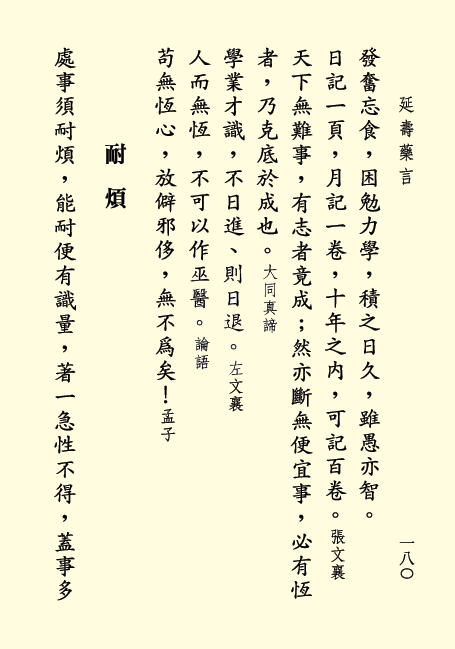 延壽藥言
一八○
發奮忘食，困勉力學，積之日久，雖愚亦智。
日記一頁，月記一卷，十年之內，可記百卷。張文襄
天下無難事，有志者竟成；然亦斷無便宜事，必有恆
者，乃克底於成也。大同真諦
學業才識，不日進、則日退。左文襄
人而無恆，不可以作巫醫。論語
苟無恆心，放僻邪侈，無不爲矣！孟子
耐煩
處事須耐煩，能耐便有識量，著一急性不得，蓋事多